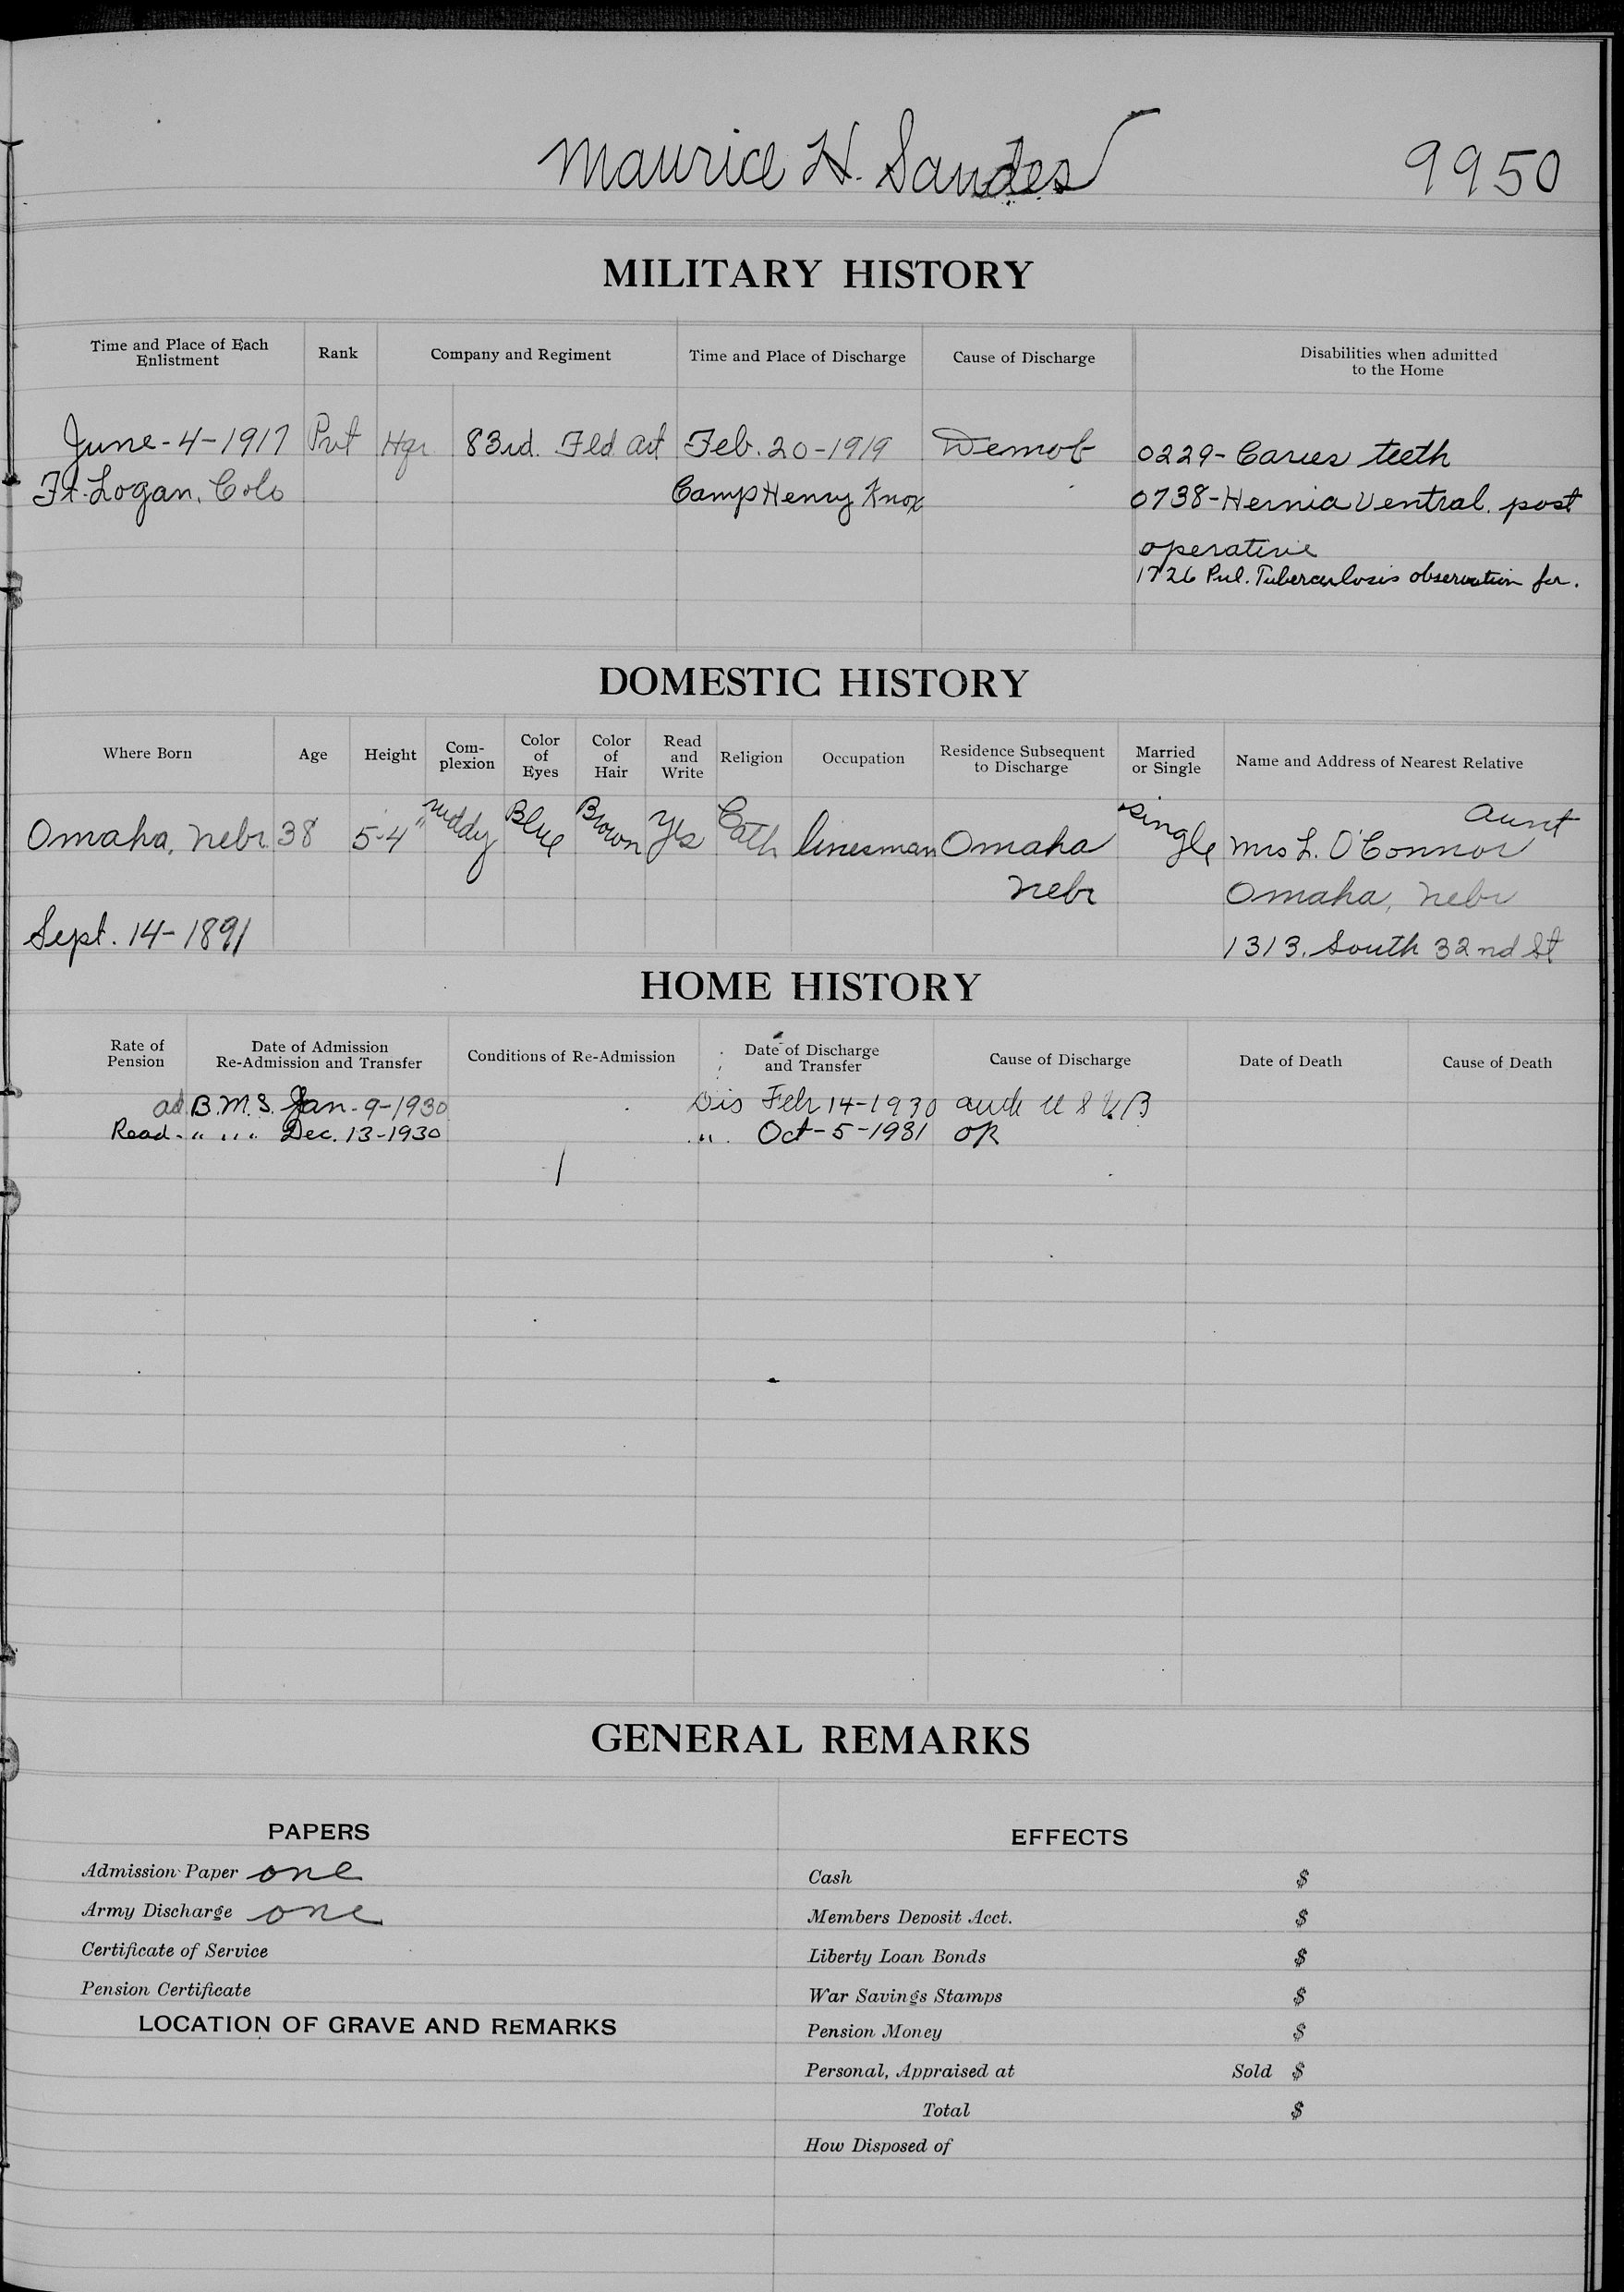 Maurice H. Sandes 9950
MILITARY HISTORY
Time and Place of Each Enlistment Rank Company and Regiment Time and Place of Discharge Cause of Discharge Disabilities when admitted to the Home
June-4-1917 Pvt Hqr 83rd. Fld art Feb. 20-1919 Demob 0229- Caries teeth
Ft. Logan, Colo Camp Henry Knox 0738-Hernia Ventral. post
operative
1726 Pul. Tuberculosis observation for.
DOMESTIC HISTORY
Where Born Age Height Com-plexion Color of Eyes Color of Hair Read and Write Religion Occupation Residence Subsequent to Discharge Married or Single Name and Address of Nearest Relative
Omaha, Nebr. 38 5-4" ruddy Blue Brown Yes Cath linesman Omaha single Aunt
Mrs L. O'Connor
Nebr Omaha, Nebr
Sept. 14-1891 1313. South 32nd St
HOME HISTORY
Rate of Pension Date of Admission Re-Admission and Transfer Conditions of Re-Admission Date of Discharge and Transfer Cause of Discharge Date of Death Cause of Death
ad B.M.S. Jan-9-1930 Dis Feb 14-1930 auth U S V B
Read. " " " Dec. 13-1930 " Oct-5-1931 OR
GENERAL REMARKS
PAPERS
EFFECTS
Admission Paper one
Cash $
Army Discharge one
Members Deposit Acct. $
Certificate of Service
Liberty Loan Bonds $
Pension Certificate
War Savings Stamps $
LOCATION OF GRAVE AND REMARKS
Pension Money $
Personal, Appraised at Sold $
Total $
How Disposed of